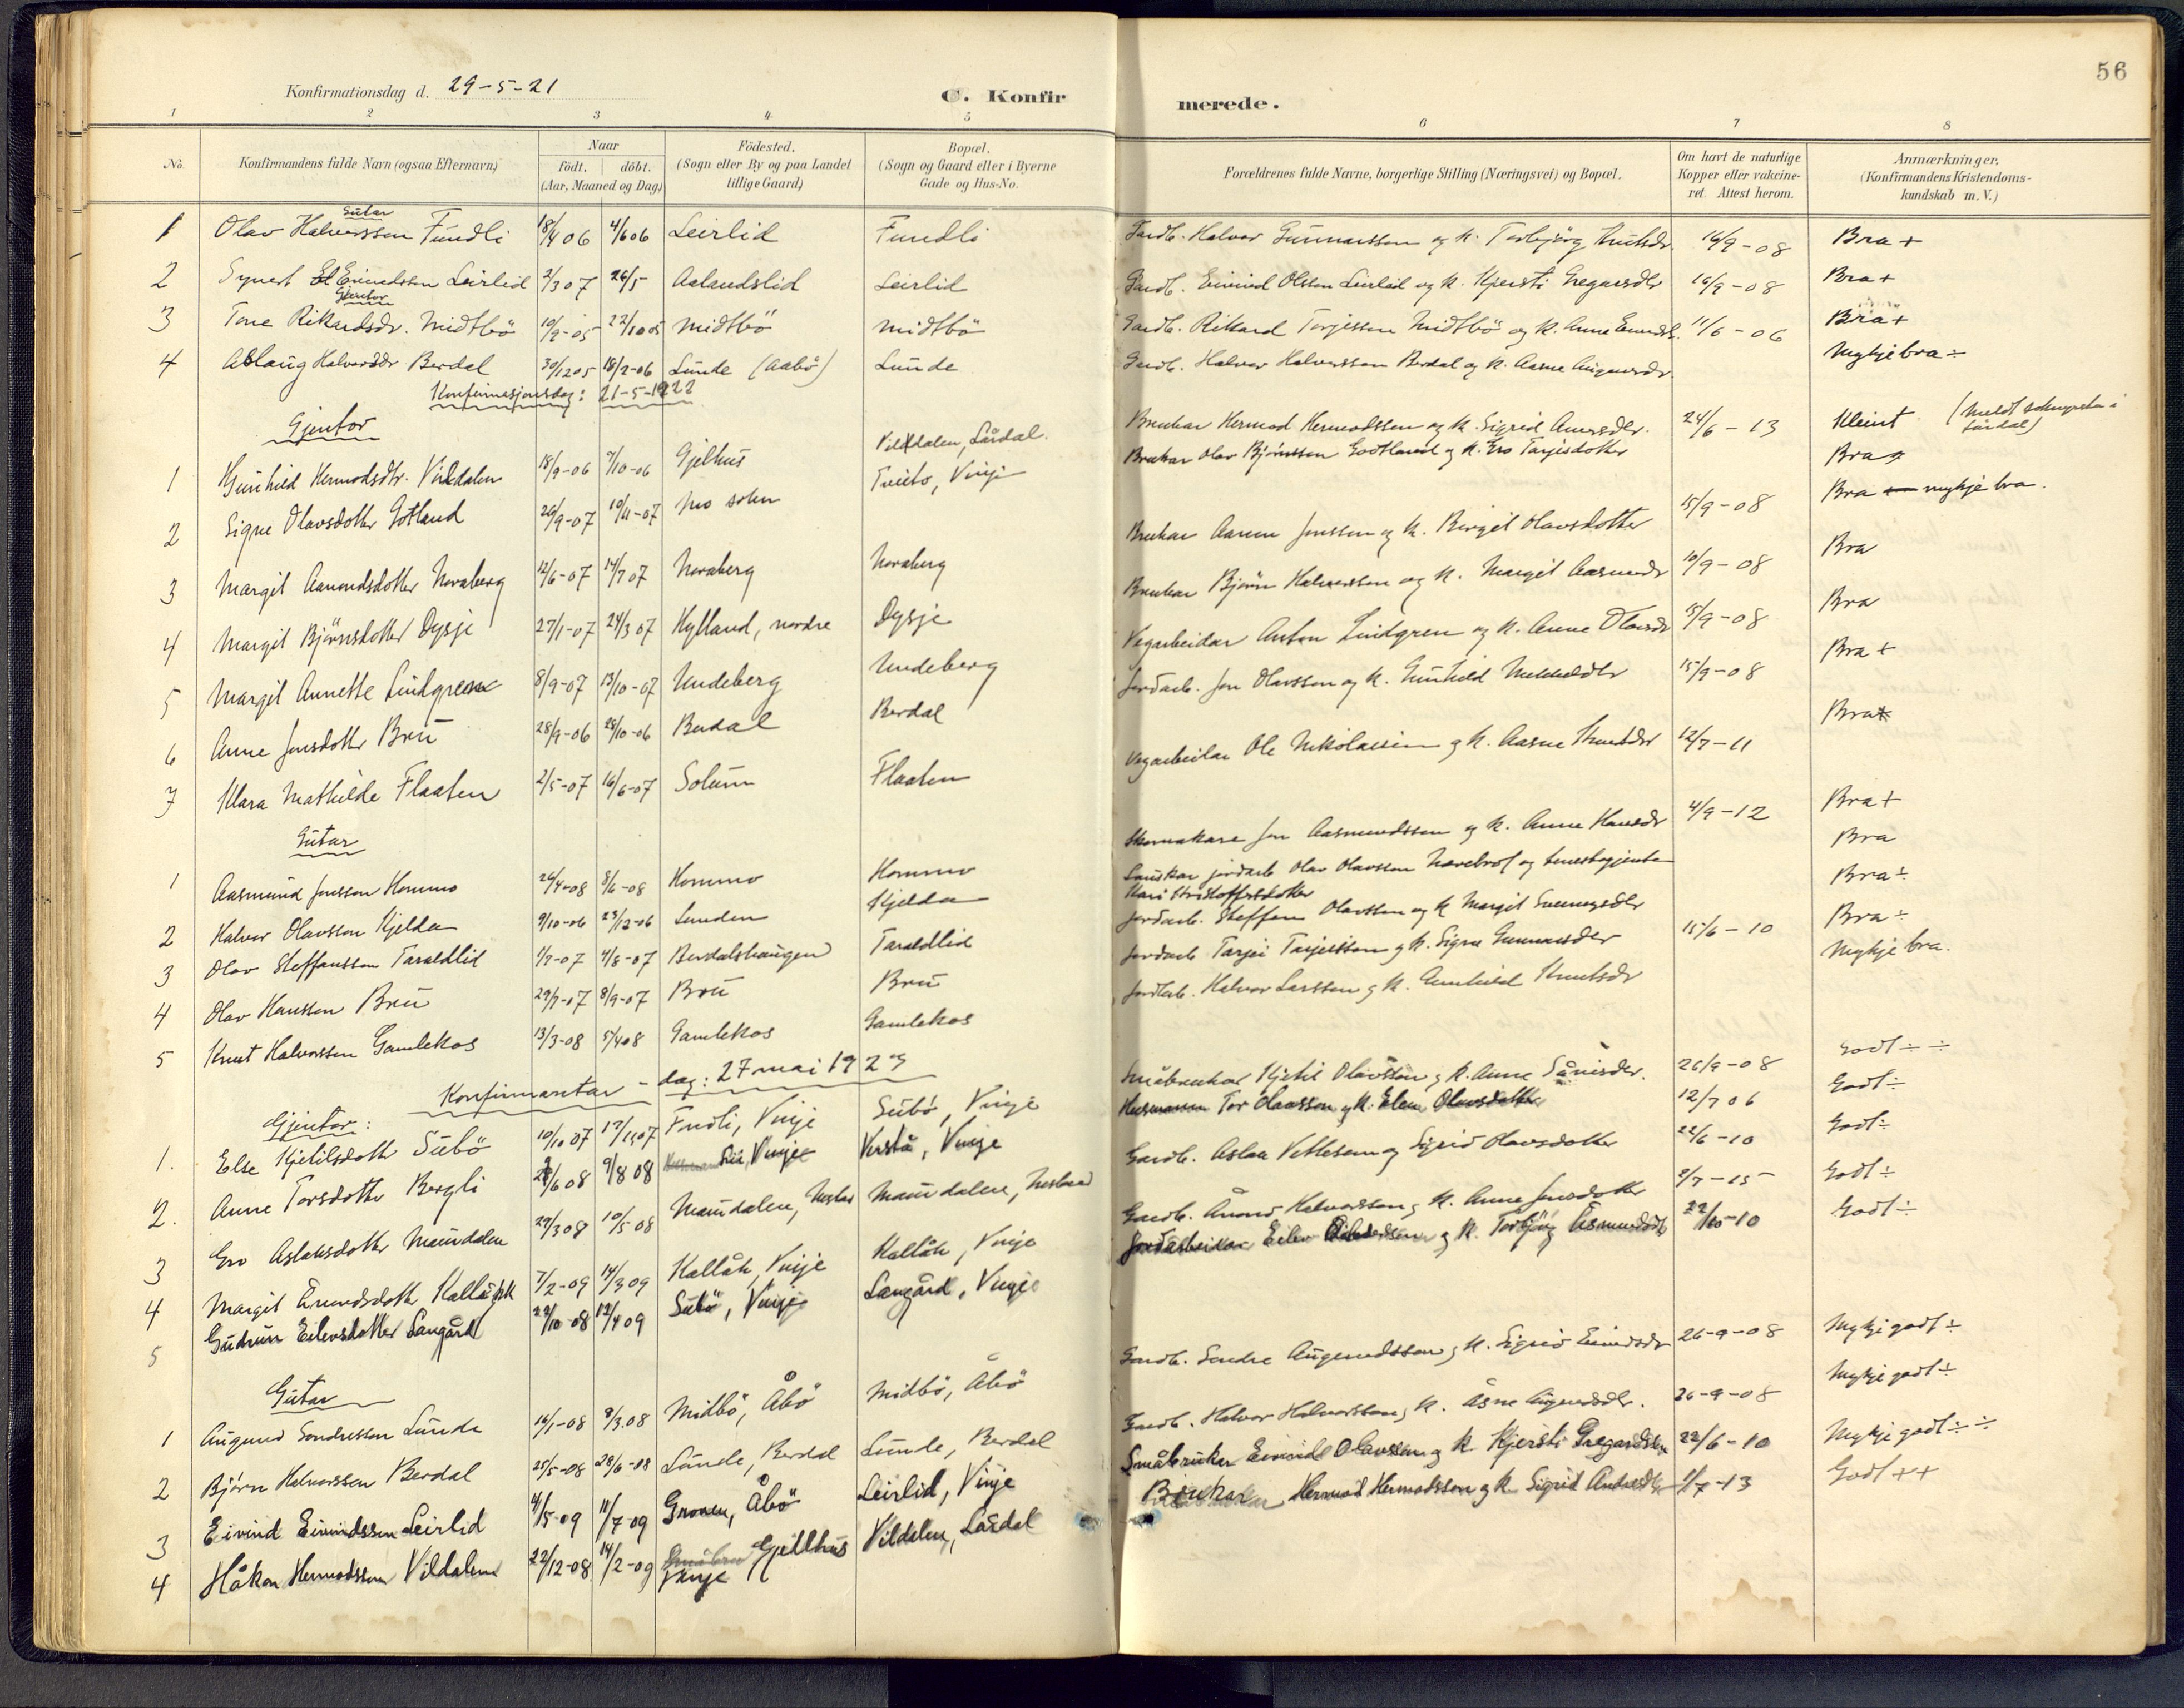 56
Konfirmationsdag d. 29-5-21
C. Konfirmerede.
1 2 3 4 5 6 7 8
No. Konfirmandens fulde Navn (ogsaa Efternavn) Naar födt. döbt. (Aar, Maaned og Dag) Födested. (Sogn eller By og paa Landet tillige Gaard) Bopæl. (Sogn og Gaard eller i Byerne Gade og Hus-No. Forældrenes fulde Navne, borgerlige Stilling (Næringsvei) og Bopæl. Om havt de naturlige Kopper eller vakcineret. Attest herom. Anmærkninger. (Konfirmandens Kristendomskundskab m. V.)
Gutar
1 Olav Halvorsson Fundli 18/4 06 4/6 06 Leirlid Fundli Gardb. Halvor Gunnarsson og k. Torbjørg Knutsdr. 16/9-08 Bra +
2 Synest Eivindsson Leirlid 2/3 07 26/5 Aalandslid Leirlid Gardb. Eivind Olsson Leirlid og k. Kjersti Gregarsdtr 16/9-08 Bra +
Gjentor
3 Tone Rikardsdr. Midtbö 10/9-05 22/10 05 Midtbö Midtbö Gardb. Rikard Torjisson Midtbö og k. Anne Eivindsd. 11/6-06 Bra +
4 Aslaug Halvorsdr Berdal 30/12 05 18/2-06 Lunde (Aabö) Lunde Gardb. Halvor Halvorsson Berdal og k. Aasne Augunsdr. Mykje bra ÷
Konfirmasjonsdag: 21-5-1922
Gjentor
1 Gunhild Hermodsdtr. Vildalen 18/9-06 7/10-06 Gjelhus Vildalen, Lårdal. Brukar Hermod Hermodsson og k. Sigrid Anersdtr. 24/6-13 Kleint (Meldt sokneprest i Lårdal)
2 Signe Olavsdotter Gotland 26/9-07 10/11-07 Mo sokn Tveito, Vinje Brukar Olav Bjørnsson Gotland og k. Gro Tarjeisdotter Bra
3 Margit Aamondsdotter Noraberg 12/6-07 14/7 07 Noraberg Noraberg Brukar Aamon Jonsson og k. Birgit Olavsdotter 15/9-08 Bra mykje bra.
4 Margit Bjørnsdotter Dysje 27/1-07 24/3 07 Hylland, nordre Dysje Brukar Bjørn Halvorsson og k. Margit Aasmundsdr 10/9-08 Bra
5 Margit Annette Lindgren 8/9-07 13/10-07 Undeberg Undeberg Vegarbeidar Anton Lindgren og k. Anne Olavsdr 15/9-08 Bra
6 Anne Jonsdotter Bru 28/9-06 28/10-06 Berdal Berdal Jordarb. Jon Olavsson og k. Gunhild Mikkelsdtr 15/9-08 Bra +
7 Klara Mathilde Flaaten 2/5-07 16/6-07 Solum Flaaten Vegarbeidar Ole Nikolaisen og k. Aasne Knutsdr 12/7-11 Bra
Gutar
1 Aasmund Jonsson Hommo 26/4-08 8/6-08 Hommo Hommo Skomakare Jon Aasmundsson og k. Anne Hansdr 4/9-12 Bra +
2 Halvor Olavsson Kjelda 9/10-06 23/12-06 Lunden Kjelda Lauskar jordarb Olav Olavsson Nærebrot og tenestegjenta Kari Kristoffersdotter Bra
3 Olav Steffansson Taraldlid 1/7-07 4/8-07 Berdalshaugen Taraldlid Jordarb. Steffan Olavsson og k Margit Sveinungsdtr Bra ÷
4 Olav Hansson Bru 29/7-07 8/9-07 Bru Bru Jordarb Tarjei Tarjeisson og k. Signe Gunnarsdtr 15/6-10 Bra ÷
5 Knut Halvorsson Gamlekas 13/3-08 5/4 08 Gamlekas Gamlekas Jordarb. Halvor Larsson og k. Gunhild Knutsdr Mykje bra.
Konfirmantar - dag: 27 mai 1923
Gjentor:
1. Else Kjetilsdotter Subö 10/10 07 17/11 07 Fundli, Vinje Subö, Vinje Småbrukar Kjetil Olavsson og k. Anne Såvisdr. 26/9-08 Godt ÷ ÷
2. Anne Torsdotter Bergli 28/6 08 9/8 08 Vinje Versto, Vinje Husmann Tor Olavsson og k. Elen Olavsdotter 12/7 06 Godt ÷
3 Gro Aslaksdotter Maurdalen 29/3 08 10/5 08 Maurdalen, Nesland Maurdalen, Nesland Gardb. Aslak Vetlesen og Sigrid Olavsdotter 22/6-10 Godt ÷
4 Margit Åmundsdotter Kallåk 7/2-09 14/3 09 Kallåk, Vinje Kallåk, Vinje Gardb. Åmund Halvorsson og k. Anne Jonsdotter 2/7-15 Godt ÷
5 Gudrun Eilevsdotter Langård 29/10-08 12/4 09 Subö, Vinje Langård, Vinje Jordarbeidar Eilev Eilevsson og k. Torbjörg Åsmundsdtr 22/10-10 Godt ÷
Gutar
1 Augund Sondresson Lunde 16/1-08 8/3.08 Midbö, Åbö Midbö, Åbö Gardb. Sondre Augundsson og k. Sigrid Eivindsdr 26-9-08 Mykje godt ÷
2 Bjørn Halvorsson Berdal 25/5-08 28/6-08 Lunde, Berdal Lunde, Berdal Gardb. Halvor Halvorsson og k. Åsne Augundsdr. 26-9-08 Mykje godt ÷
3 Eivind Eivindsson Leirlid 4/5-09 11/7-09 Groven, Åbö Leirlid, Vinje Småbrukar Eivind Olavsson og k Kjersti Gregardsdtr 22/6-10 Mykje godt ÷ ÷
4 Håkon Hermodsson Vildalen 22/12-08 14/2-09 Gjellhus Vinje Vildalen, Lårdal Brukar Hermod Hermodsson og k Sigrid Andersdtr 1/7-13 Godt ++